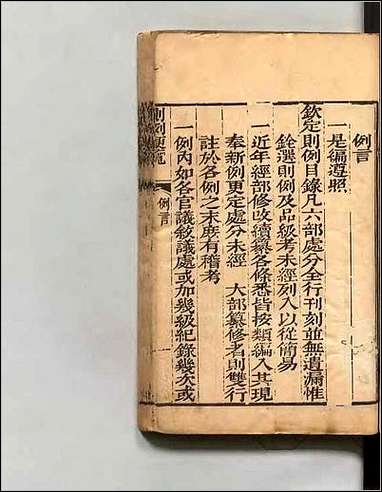 例言
一是編遵照
欽定則例目錄凡六部處分全行刊刻並無遺漏惟
銓選則例及品級考未經列入以從簡易
一近年經部修改續纂各條悉皆按類編入其現
奉新例更定處分未經 大部纂修者則雙行
註於各例之末庶有稽考
一例內如各官議敘議處或加幾級紀錄幾次或
則例便覽
例言